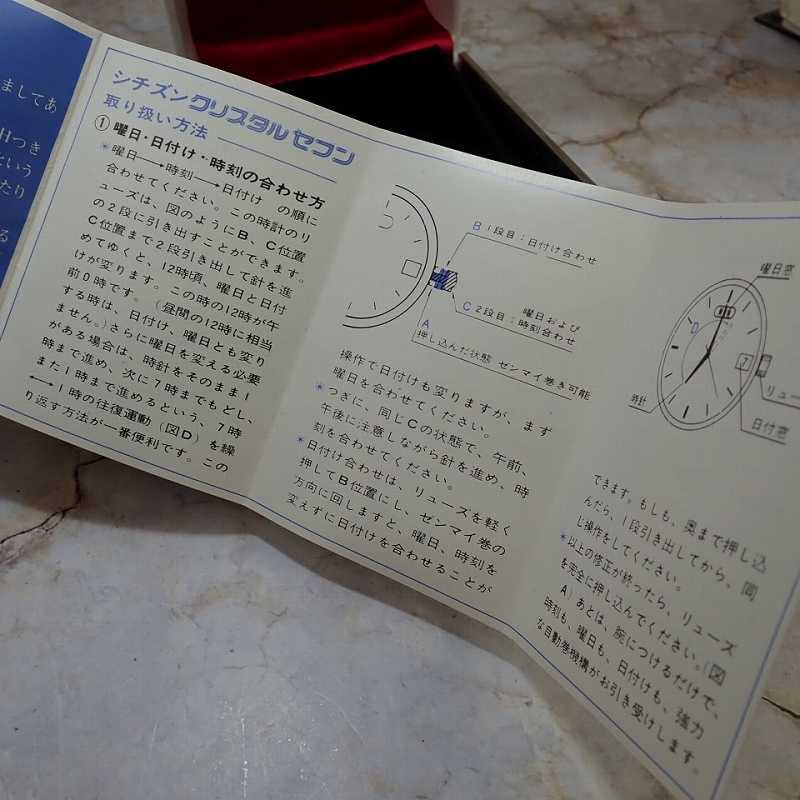 ましてあ
日つき
という
たり
る
シチズン クリスタル セブン
取り扱い方法
① 曜日・日付け・時刻の合わせ方
*曜日→時刻→日付け の順に
合わせてください。この時計のリ
ューズは、図のようにB、C位置
の2段に引き出すことができます。
C位置まで2段引き出して針を進
めてゆくと、12時頃、曜日と日付
けが変ります。この時の12時が午
前0時です。(昼間の12時に相当
する時は、日付け、曜日とも変り
ません。)さらに曜日を変える必要
がある場合は、時針をそのまま1
時まで進め、次に7時までもどし、
また1時まで進めるという、7時
←→1時の往復運動(図D)を繰
り返す方法が一番便利です。この
B 1段目:日付け合わせ
C 2段目:曜日および時刻合わせ
A
押し込んだ状態 ゼンマイ巻き可能
操作で日付けも変りますが、まず
曜日を合わせてください。
*つぎに、同じCの状態で、午前、
午後に注意しながら針を進め、時
刻を合わせてください。
*日付け合わせは、リューズを軽く
押してB位置にし、ゼンマイ巻の
方向に回しますと、曜日、時刻を
変えずに日付けを合わせることが
曜日窓
D
7
リュー
時針
日付窓
できます。もしも、奥まで押し込
んだら、1段引き出してから、同
じ操作をしてください。
*以上の修正が終ったら、リューズ
を完全に押し込んでください。(図
A)あとは、腕につけるだけで、
時刻も、曜日も、日付けも、強力
な自動巻機構がお引き受けします。